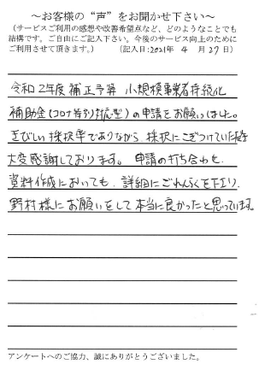 ～お客様の“声”をお聞かせ下さい～
(サービスご利用の感想や改善希望点など、どのようなことでも
結構です。ご自由にご記入下さい。今後のサービス向上のために
ご利用させて頂きます。)　(記入日:2021年 4 月 27 日)
令和2年度 補正予算 小規模事業者持続化
補助金(コロナ特別対応型)の申請をお願いしました。
きびしい採択率でありながら 採択にこぎつけていただき
大変感謝しております。申請の打ち合わせも
資料作成においても、詳細にごれんらくを下さり、
野村様にお願いをして本当に良かったと思っています。
アンケートへのご協力、誠にありがとうございました。